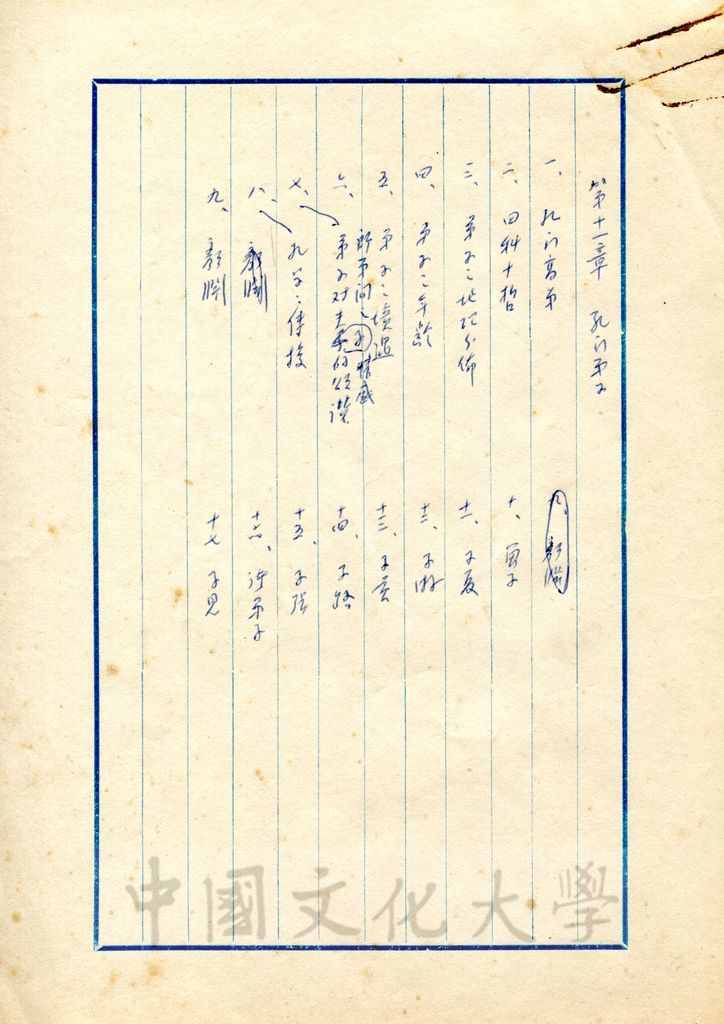 第十一章 孔门弟子
一、孔门高弟
二、四科十哲
三、弟子之地理分佈
四、弟子之年龄
五、弟子之境遇
師弟间之情感
六、弟子对夫子的頌讚
七、孔学之傳授
八、顏淵
九、顏淵
九、顏淵
十、曾子
十一、子夏
十二、子游
十三、子貢
十四、子路
十五、子張
十六、諸弟子
十七 子思
中國文化大學